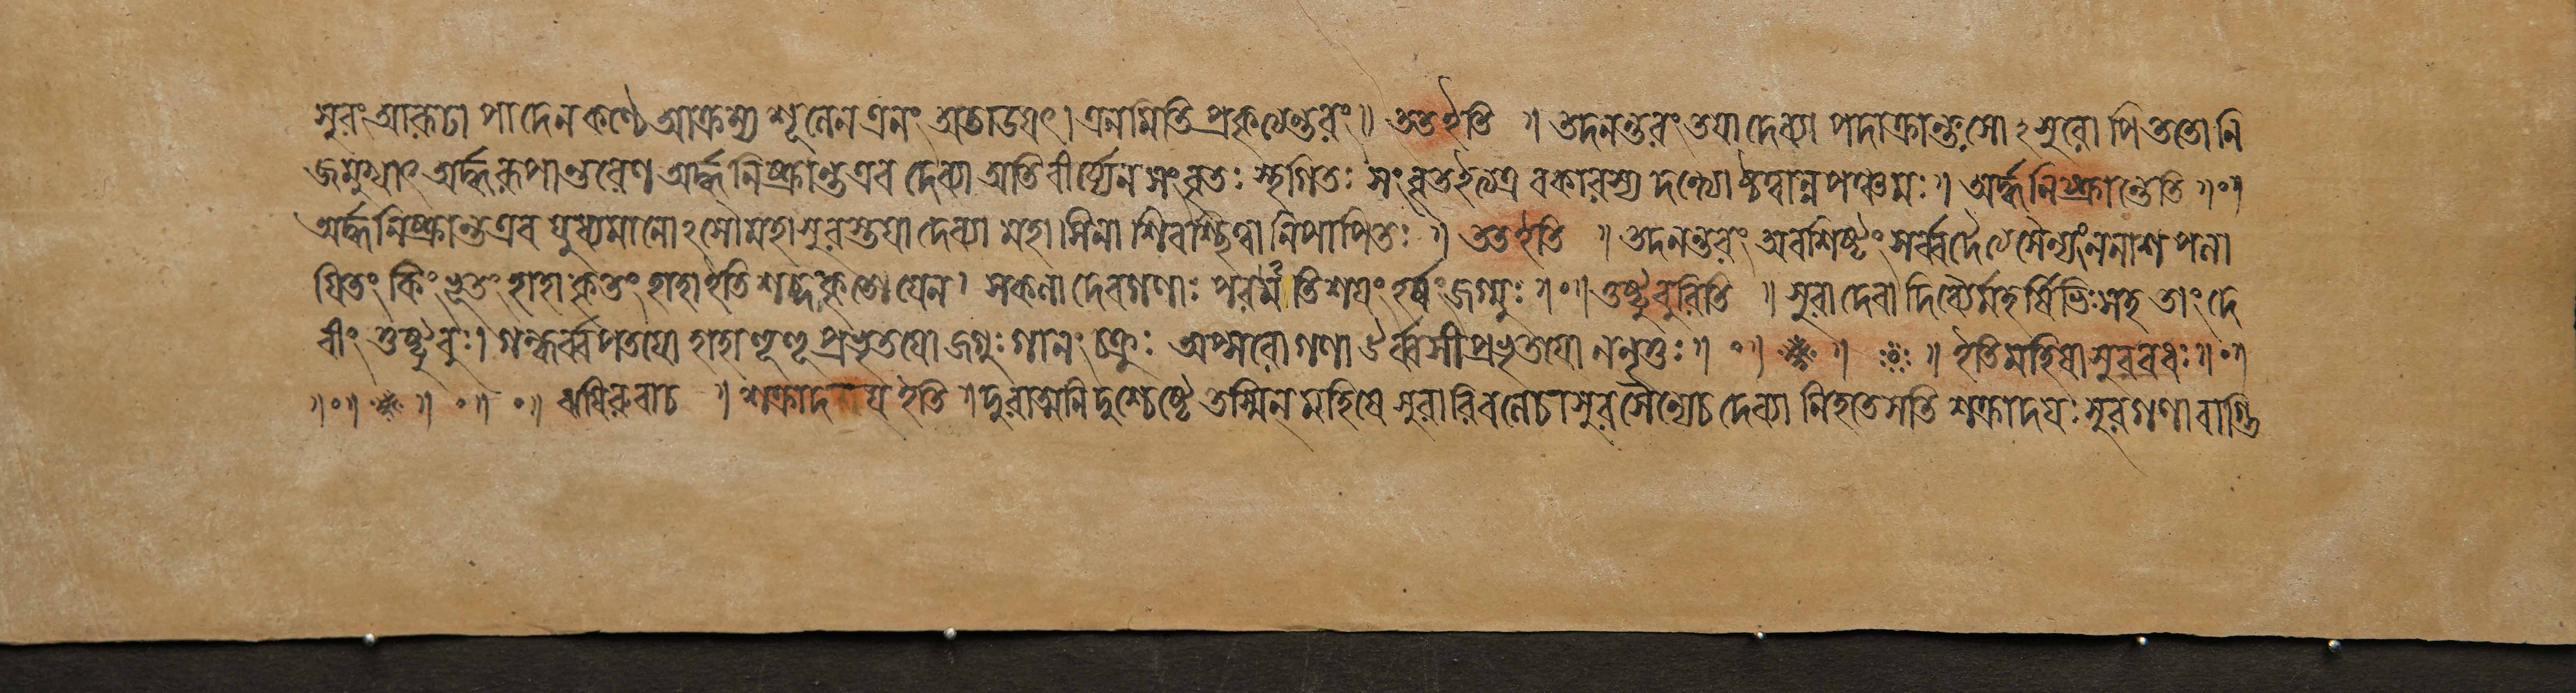 সুরং আরূঢা পাদেন কণ্ঠে আক্রম্য শূলেন এনং অতাডয়ৎ। এনামিতি প্রকৃত্যেন্তরং॥ ততইতি ॥ তদনন্তরং তয়া দেব্যা পদাক্রান্তঃ সোঽসুরোপি ততো নি
জমুখাৎ অর্দ্ধরূপান্তরেণ অর্দ্ধনিষ্ক্রান্ত এব দেব্যা অতিবীর্য্যেন সংবৃতঃ স্থগিতঃ সংবৃতইত্যত্র বকারস্য দন্ত্যোষ্ঠত্বান্নপঞ্চমঃ॥ অর্দ্ধনিষ্ক্রান্তেতি ॥॰॥
অর্দ্ধনিষ্ক্রান্ত এব যুধ্যমানোঽসৌ মহাসুরস্তয়া দেব্যা মহাসিনা শিরশ্ছিত্বা নিপাতিতঃ ॥ ততইতি ॥ তদনন্তরং অবশিষ্টং সর্ব্বদৈত্যসৈন্যং ননাশ পলা
য়িতং কিংভূতং হাহাকৃতং হাহাইতি শব্দকৃতো যেন। সকলা দেবগণাঃ পরমতিশয়ং হর্ষং জগ্মুঃ ॥॰॥ তুষ্টুবুরিতি ॥ সুরা দেবা দিব্যৈর্মহর্ষিভিঃ সহ তাং দে
বীং তুষ্টুবুঃ। গন্ধর্ব্বপতয়ো হাহা হূহূ প্রভৃতয়ো জগুঃ গানং চক্রুঃ অপ্সরোগণা ঊর্ব্বসীপ্রভৃতয়ো ননৃতুঃ॥ ॰॥ ॥ ॥ ইতি মহিষাসুরবধঃ॥॰॥
॥॰॥ ॥ ॰॥ ॰॥ ঋষিরুবাচ ॥ শক্রাদয় ইতি ॥ দুরাত্মনি দুশ্চেষ্টে তস্মিন্ মহিষে সুরারিবলেচাসুরসৈন্যেচ দেব্যা নিহতে সতি শক্রাদয়ঃ সুরগণা বাগ্ভি